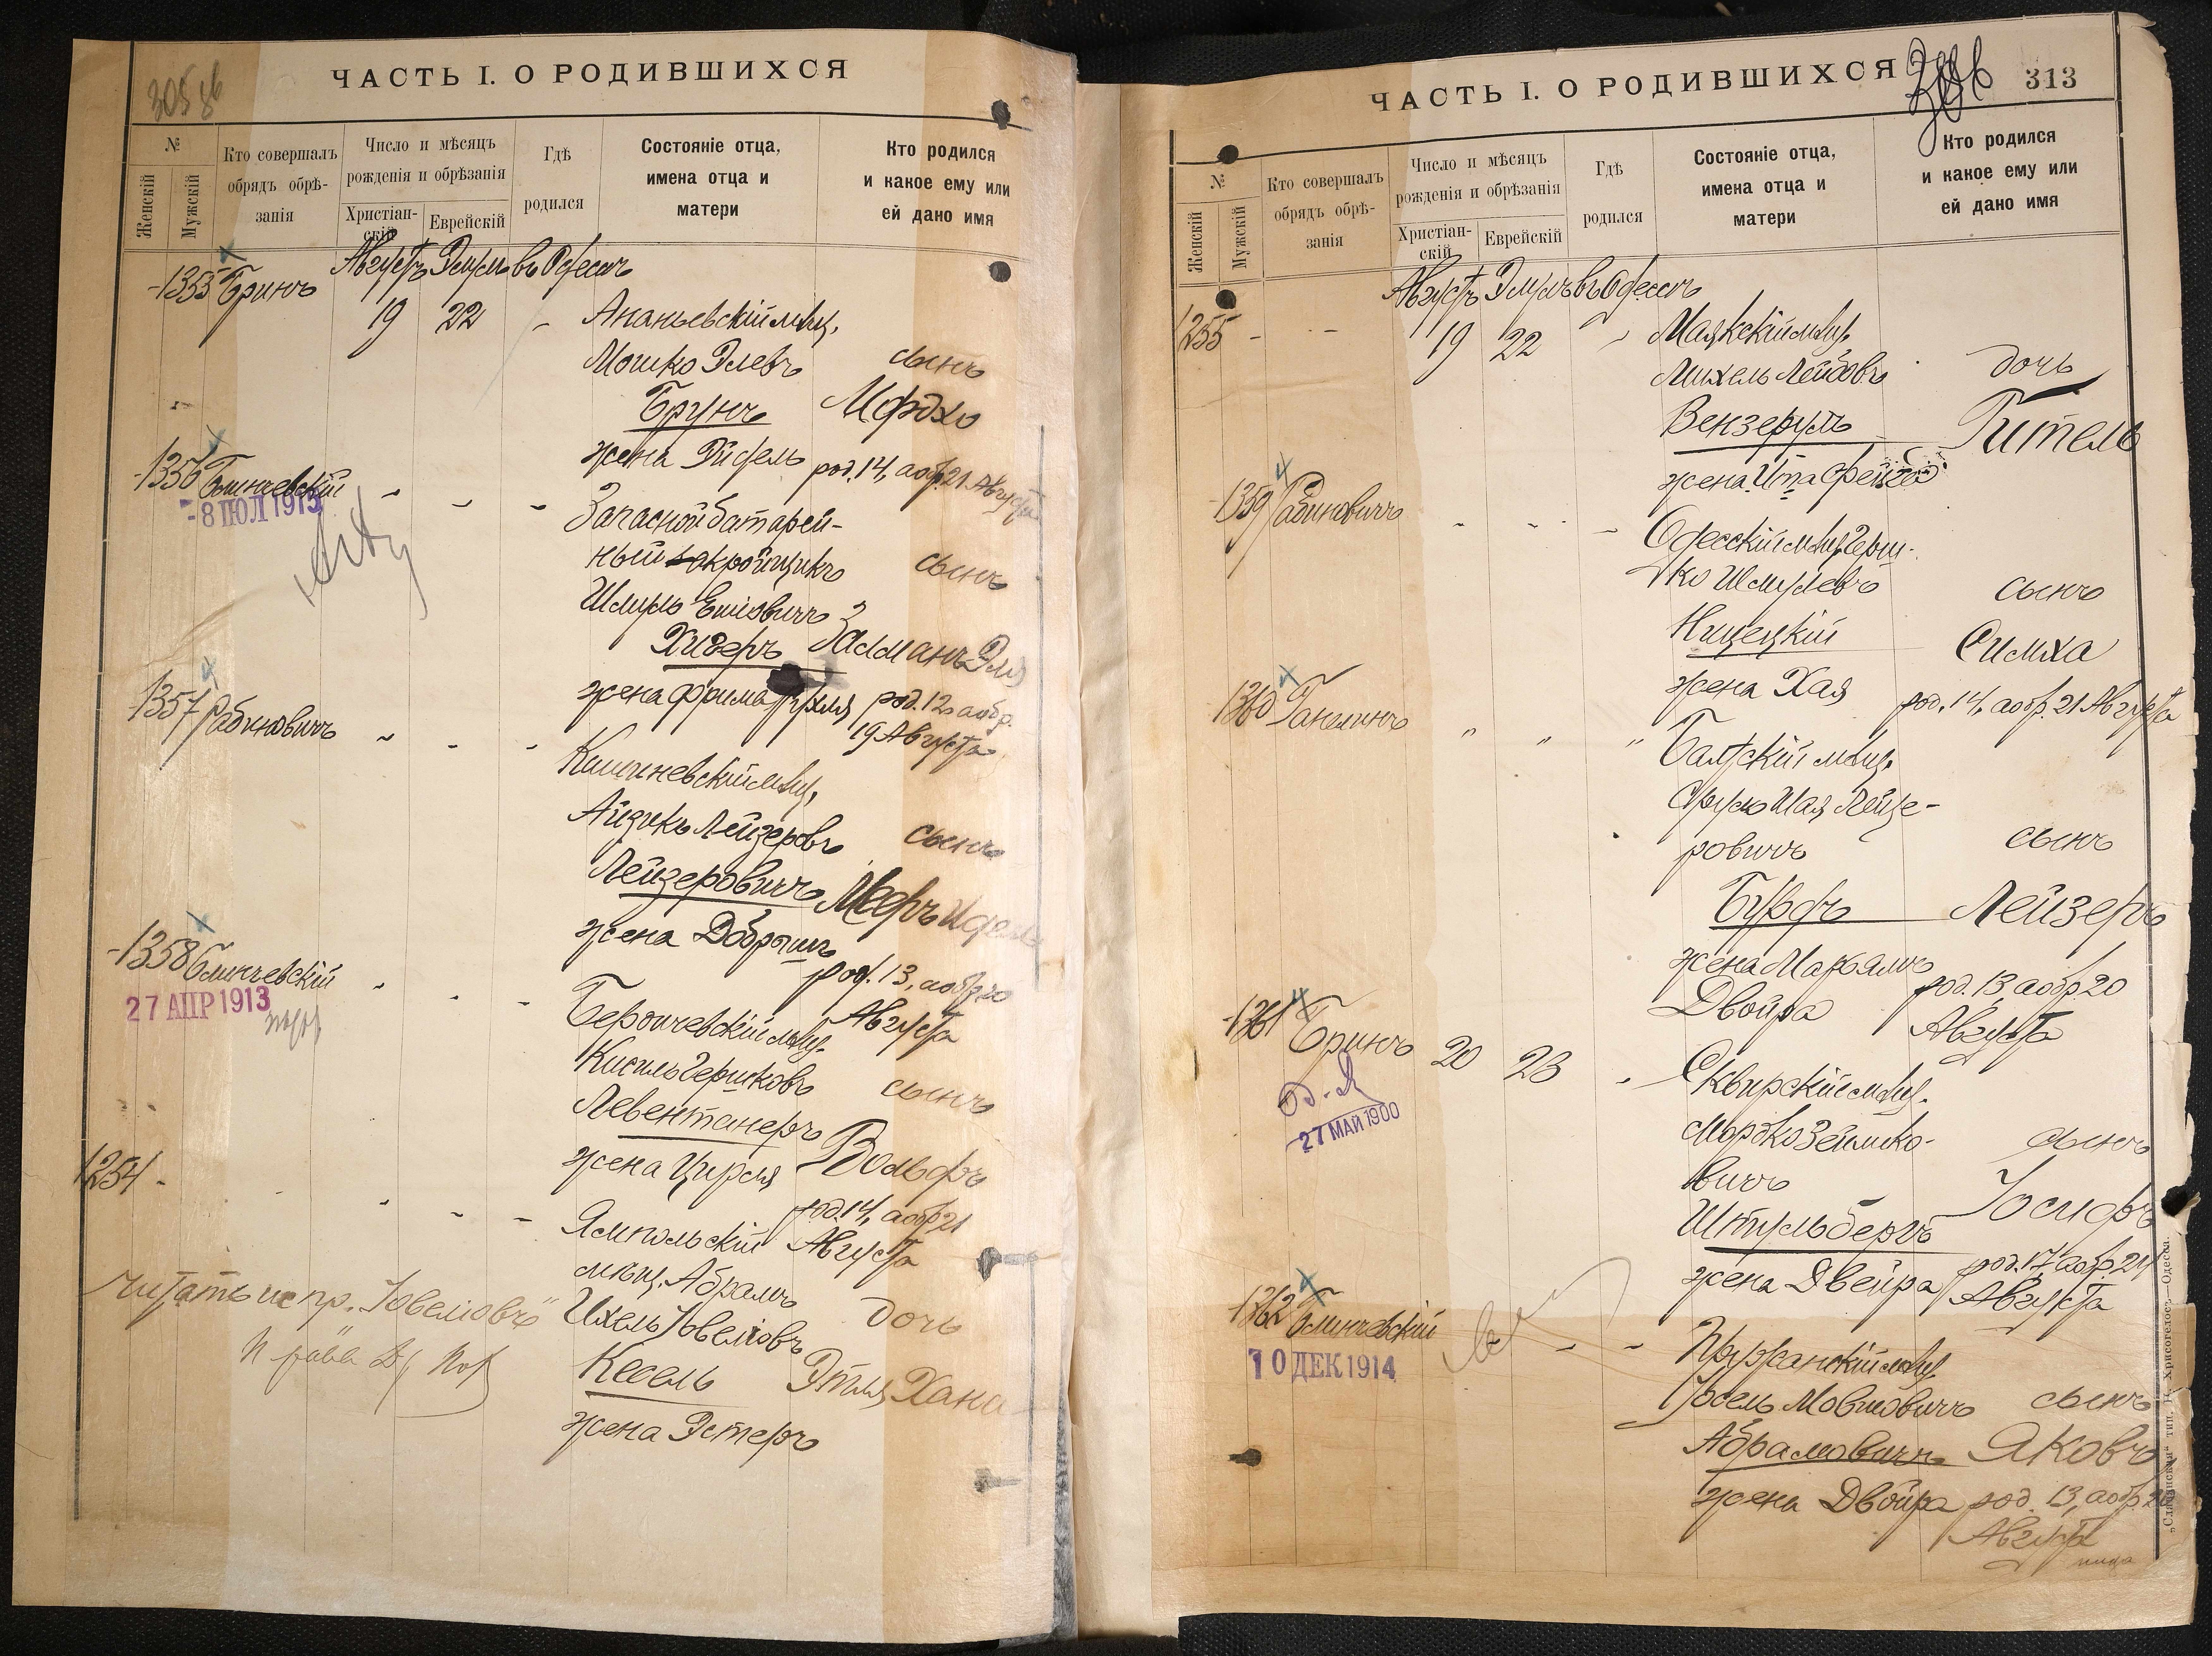 305 об
ЧАСТЬ I. О РОДИВШИХСЯ
№
Женскій
Мужскій
Кто совершалъ
обрядъ обрѣ-
занія
Число и мѣсяцъ
рожденія и обрѣзанія
Христіан-
скій
Еврейскій
Гдѣ
родился
Состояніе отца,
имена отца и
матери
Кто родился
и какое ему или
ей дано имя
Августъ Элулъ въ Одессѣ
1355 Бринъ 19 22 Ананьевскій мѣщ.
Мошко Элевъ сынъ
Брунъ Мордко
жена Эйдель род. 14, а обр. 21 Августа
1356 Блинчевскій
-8 ІЮЛ 1913
Запасной батарей-
ный закройщикъ сынъ
Шмуль
Хигеръ Залманъ Эля
жена Фрима Рухля род. 12, а обр.
19 Августа
1357 Рабиновичъ
Кишиневскій мѣщ.
Айзикъ Лейзеровъ сынъ
Лейзеровичъ Мееръ Идель
жена Добрышъ
род. 13, а обр. 20
Августа
1358 Блинчевскій
27 АПР 1913
мѣщ.
Кисиль Гершковъ сынъ
Левентанеръ
жена Цирля Вольфъ
род. 14, а обр. 21
Августа
1254
Ямпольскій
мѣщ. Абрамъ
Ихель Іовеліовъ дочь
Кесель Этля Хана
жена Эстеръ
читать испр. „Іовеліовъ“
ЧАСТЬ I. О РОДИВШИХСЯ
313
№
Женскій
Мужскій
Кто совершалъ
обрядъ обрѣ-
занія
Число и мѣсяцъ
рожденія и обрѣзанія
Христіан-
скій
Еврейскій
Гдѣ
родился
Состояніе отца,
имена отца и
матери
Кто родился
и какое ему или
ей дано имя
Августъ Элулъ въ Одессѣ
1255 19 22 Маякскій мѣщ.
Михель Лейбовъ дочь
Вензерулъ Гитель
жена Ита Фейга
1359 Рабиновичъ
Одесскій мѣщ. Герш-
ко Шмулевъ сынъ
Ницецкій Симха
жена Хая род. 14, а обр. 21 Августа
1360 Ганелинъ
Балтскій мѣщ.
Сруль Шая Лейзе-
ровичъ сынъ
Бурдъ Лейзеръ
жена Марьямъ род. 13, а обр. 20
Двойра Августа
1361 Бринъ 20 23
27 МАЙ 1900
Сквирскій мѣщ.
Мордко Зейлико-
вичъ сынъ
Штульбергъ Іосифъ
жена Двейра род. 17, а обр. 24
Августа
1362 Блинчевскій
10 ДЕК 1914
Пружанскій мѣщ.
Іосель Мовшовичъ сынъ
Абрамовичъ Яковъ
жена Двойра род. 13, а обр. 20
Августа
„Славянская“ тип. Н. Хрисогелосъ.—Одесса.